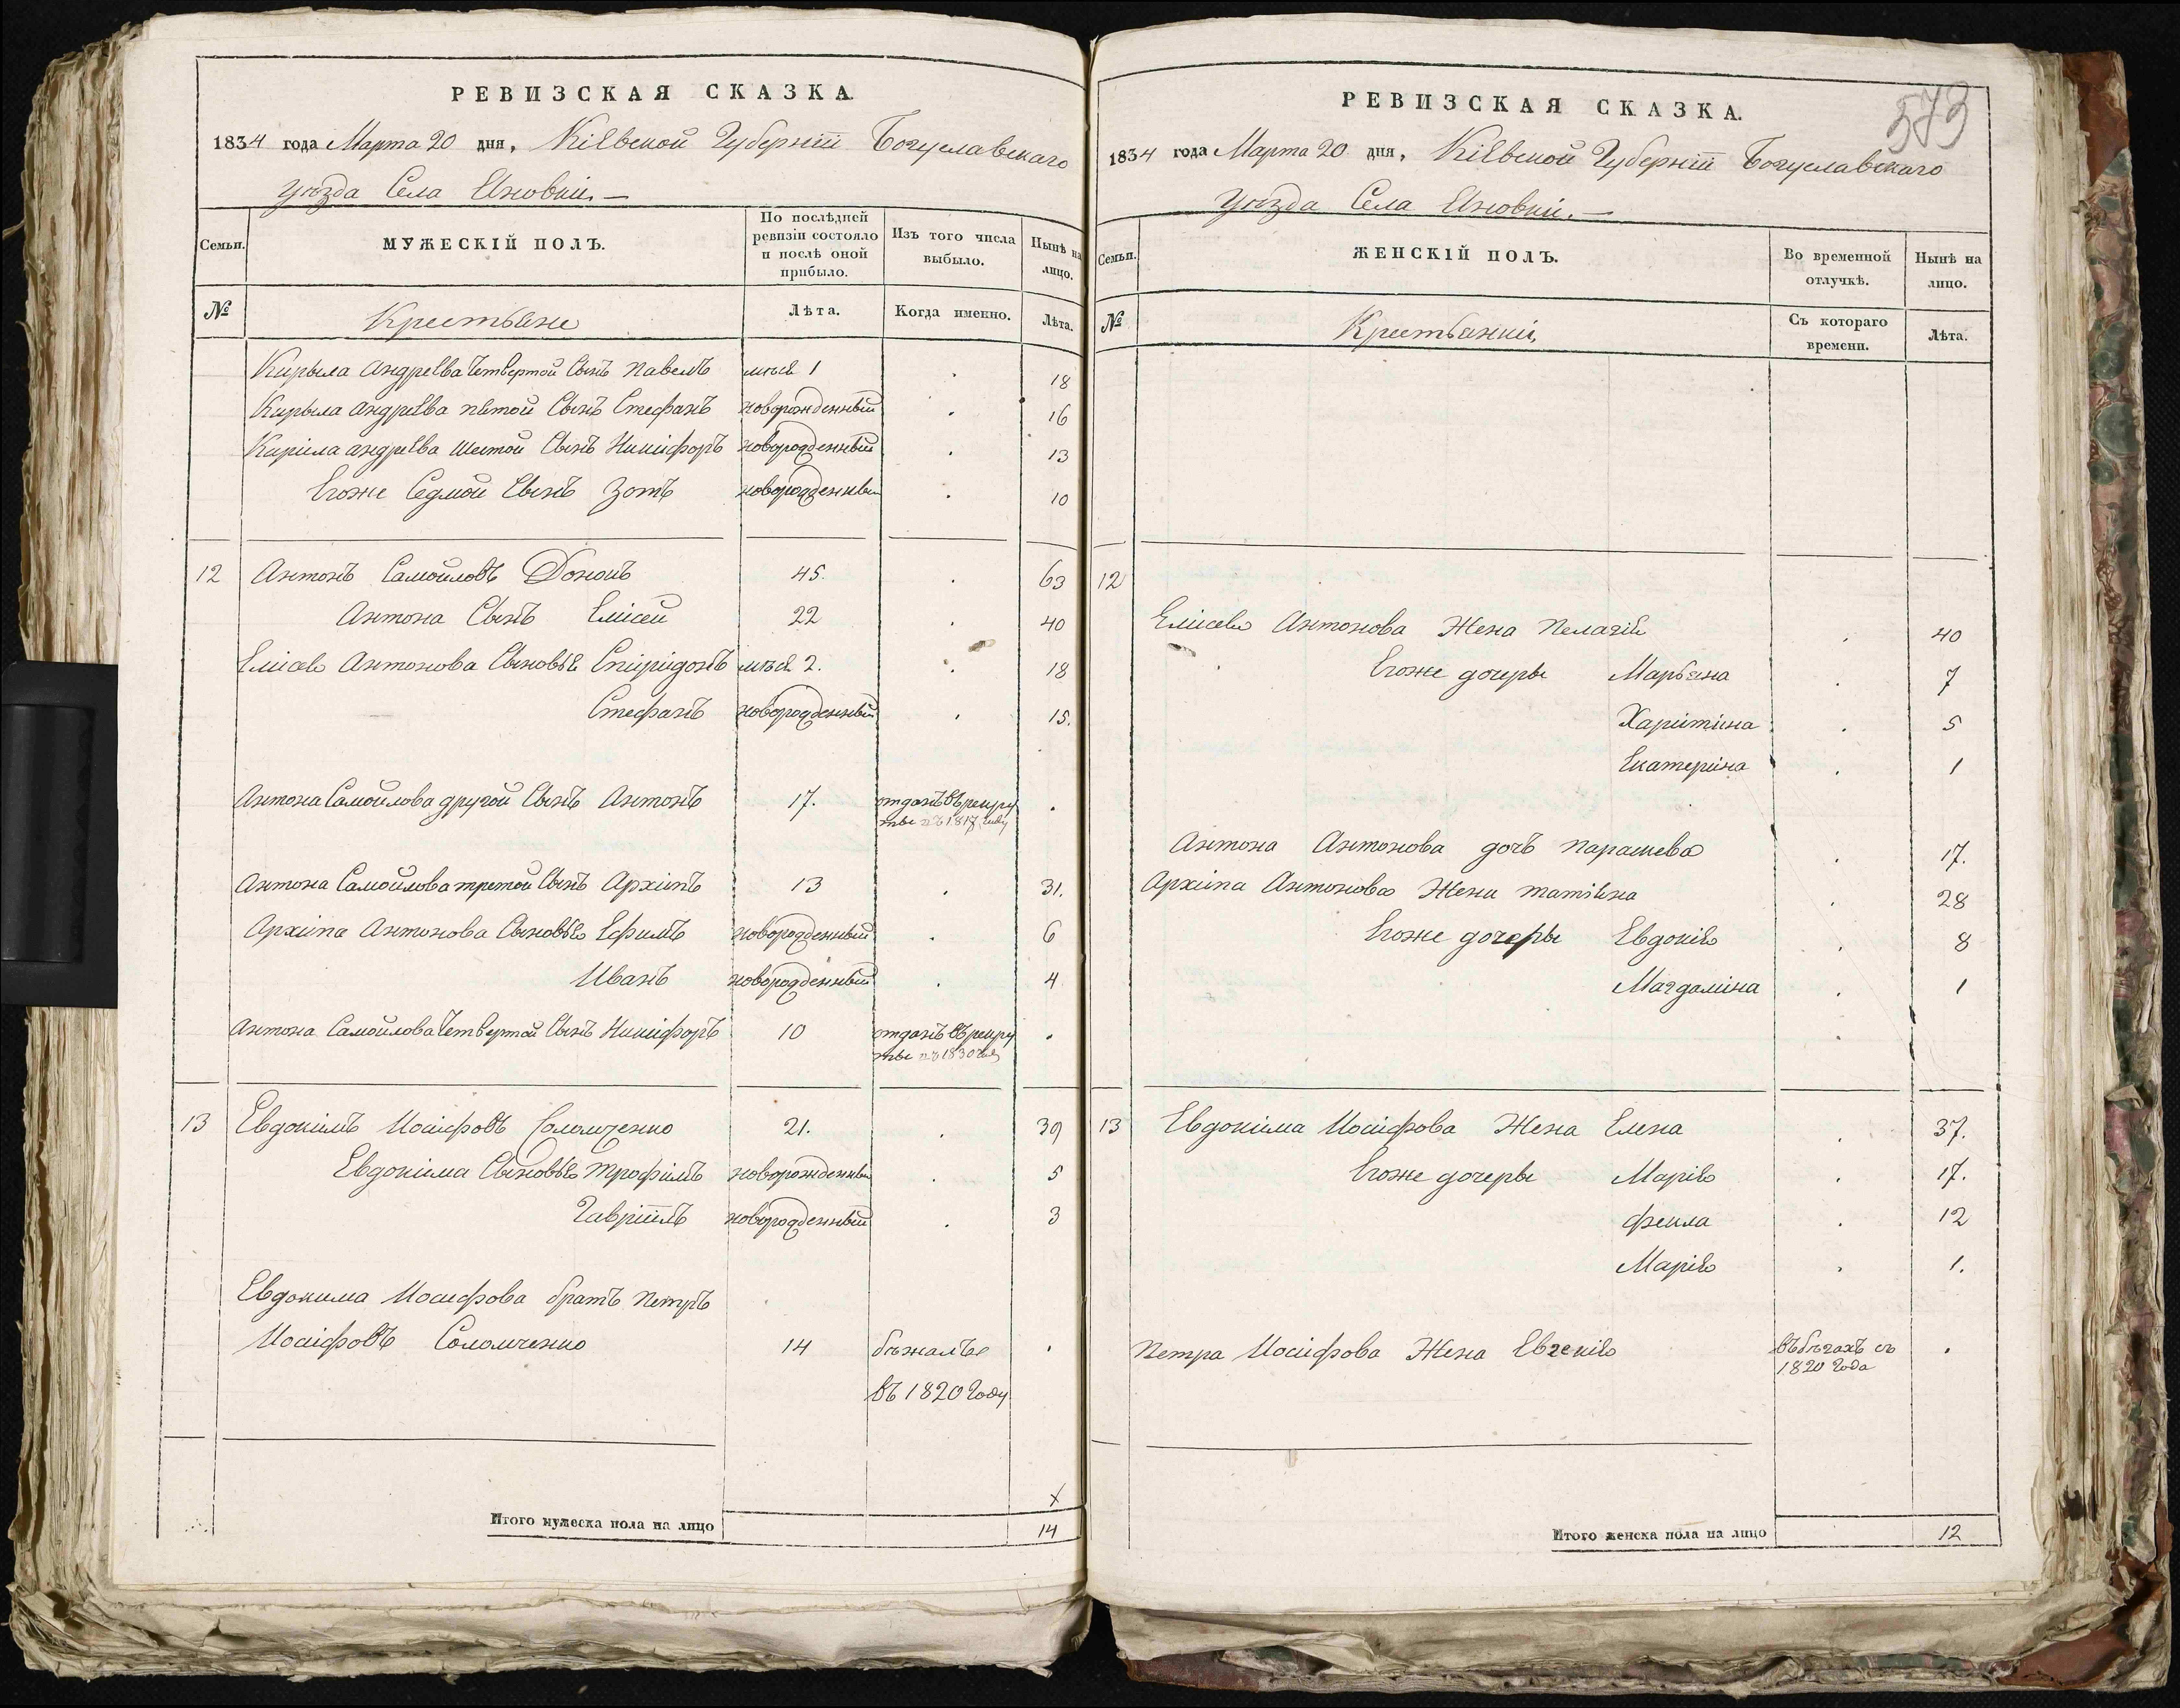 РЕВИЗСКАЯ СКАЗКА.
1834 года Марта 20 дня, Кіевской Губерніи Богуславскаго
уѣзда Села Яновки. —
Семьи. МУЖЕСКІЙ ПОЛЪ. По послѣдней ревизіи состояло и послѣ оной прибыло. Изъ того числа выбыло. Нынѣ на лицо.
№ Крестьяне Лѣта. Когда именно. Лѣта.
Кирыла Андреева Четвертой Сынъ Павелъ мѣся 1 . 18
Кирыла Андреева пятой Сынъ Стефанъ новорожденный . 16
Кирила Андреева Шестой Сынъ Никифоръ новорожденный . 13
Егоже Седмой Сынъ Зотъ новорожденный . 10
12 Антонъ Самойловъ Донецъ 45. . 63
Антона Сынъ Елисей 22 . 40
Елисея Антонова Сыновья Спиридонъ мѣся 2. . 18
Стефанъ новорожденный . 15.
Антона Самойлова другой Сынъ Антонъ 17. отданъ въ рекру
ты въ 1817 году .
Антона Самойлова третой Сынъ Архипъ 13 . 31.
Архипа Антонова Сыновья Ефимъ новорожденный . 6
Иванъ новорожденный . 4
Антона Самойлова Четвертой Сынъ Никифоръ 10 отданъ въ рекру
ты въ 1830 году .
13 Евдокимъ Иосифовъ Соломченко 21. . 39
Евдокима Сыновья Трофимъ новорожденный . 5
Гавріилъ новорожденный . 3
Евдокима Иосифова братъ Петръ
Иосифовъ Соломченко 14 бѣжалъ .
въ 1820 Году
х
Итого мужеска пола на лицо 14
573
РЕВИЗСКАЯ СКАЗКА.
1834 года Марта 20 дня, Кіевской Губерніи Богуславскаго
уѣзда Села Яновки. —
Семьи. ЖЕНСКІЙ ПОЛЪ. Во временной отлучкѣ. Нынѣ на лицо.
№ Крестьянки Съ котораго времени. Лѣта.
12
Елисея Антонова Жена Пелагія . 40
Егоже дочеры Марьяна . 7
Харитина . 5
Екатерина . 1
Антона Антонова дочъ Параскева . 17.
Архипа Антонова Жена Татіяна . 28
Егоже дочеры Евдокія . 8
Магдалина . 1
13 Евдокима Иосифова Жена Елена . 37.
Егоже дочеры Марія . 17.
Фекла . 12
Марія . 1.
Петра Иосифова Жена Евгенія въ бѣгахъ съ
1820 Года .
Итого женска пола на лицо 12